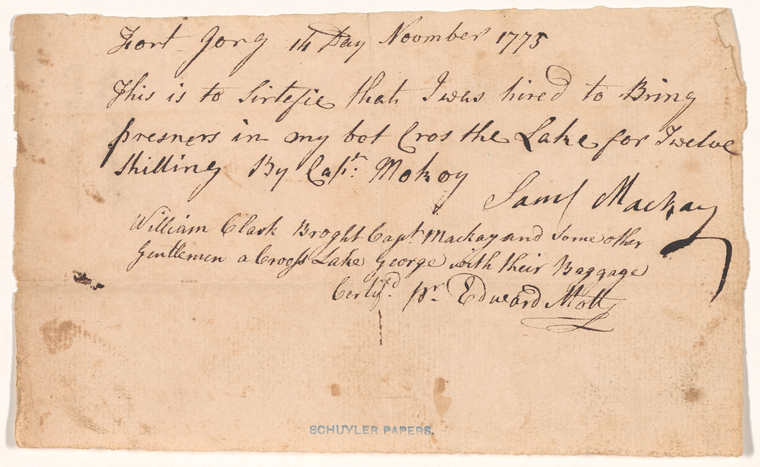 Fort Gorg 14 Day Noombr 1775
This is to Sirtefie that I was hired to Bring
presners in my bot Cros the Lake for Twelve
Shilling By Capt. Mokoy
Saml Mackay
William Clark Broght Capt. Mackay and Some other
Gentlemen a Cross Lake George with their Baggage
Certifd. pr. Edward Mott
SCHUYLER PAPERS.